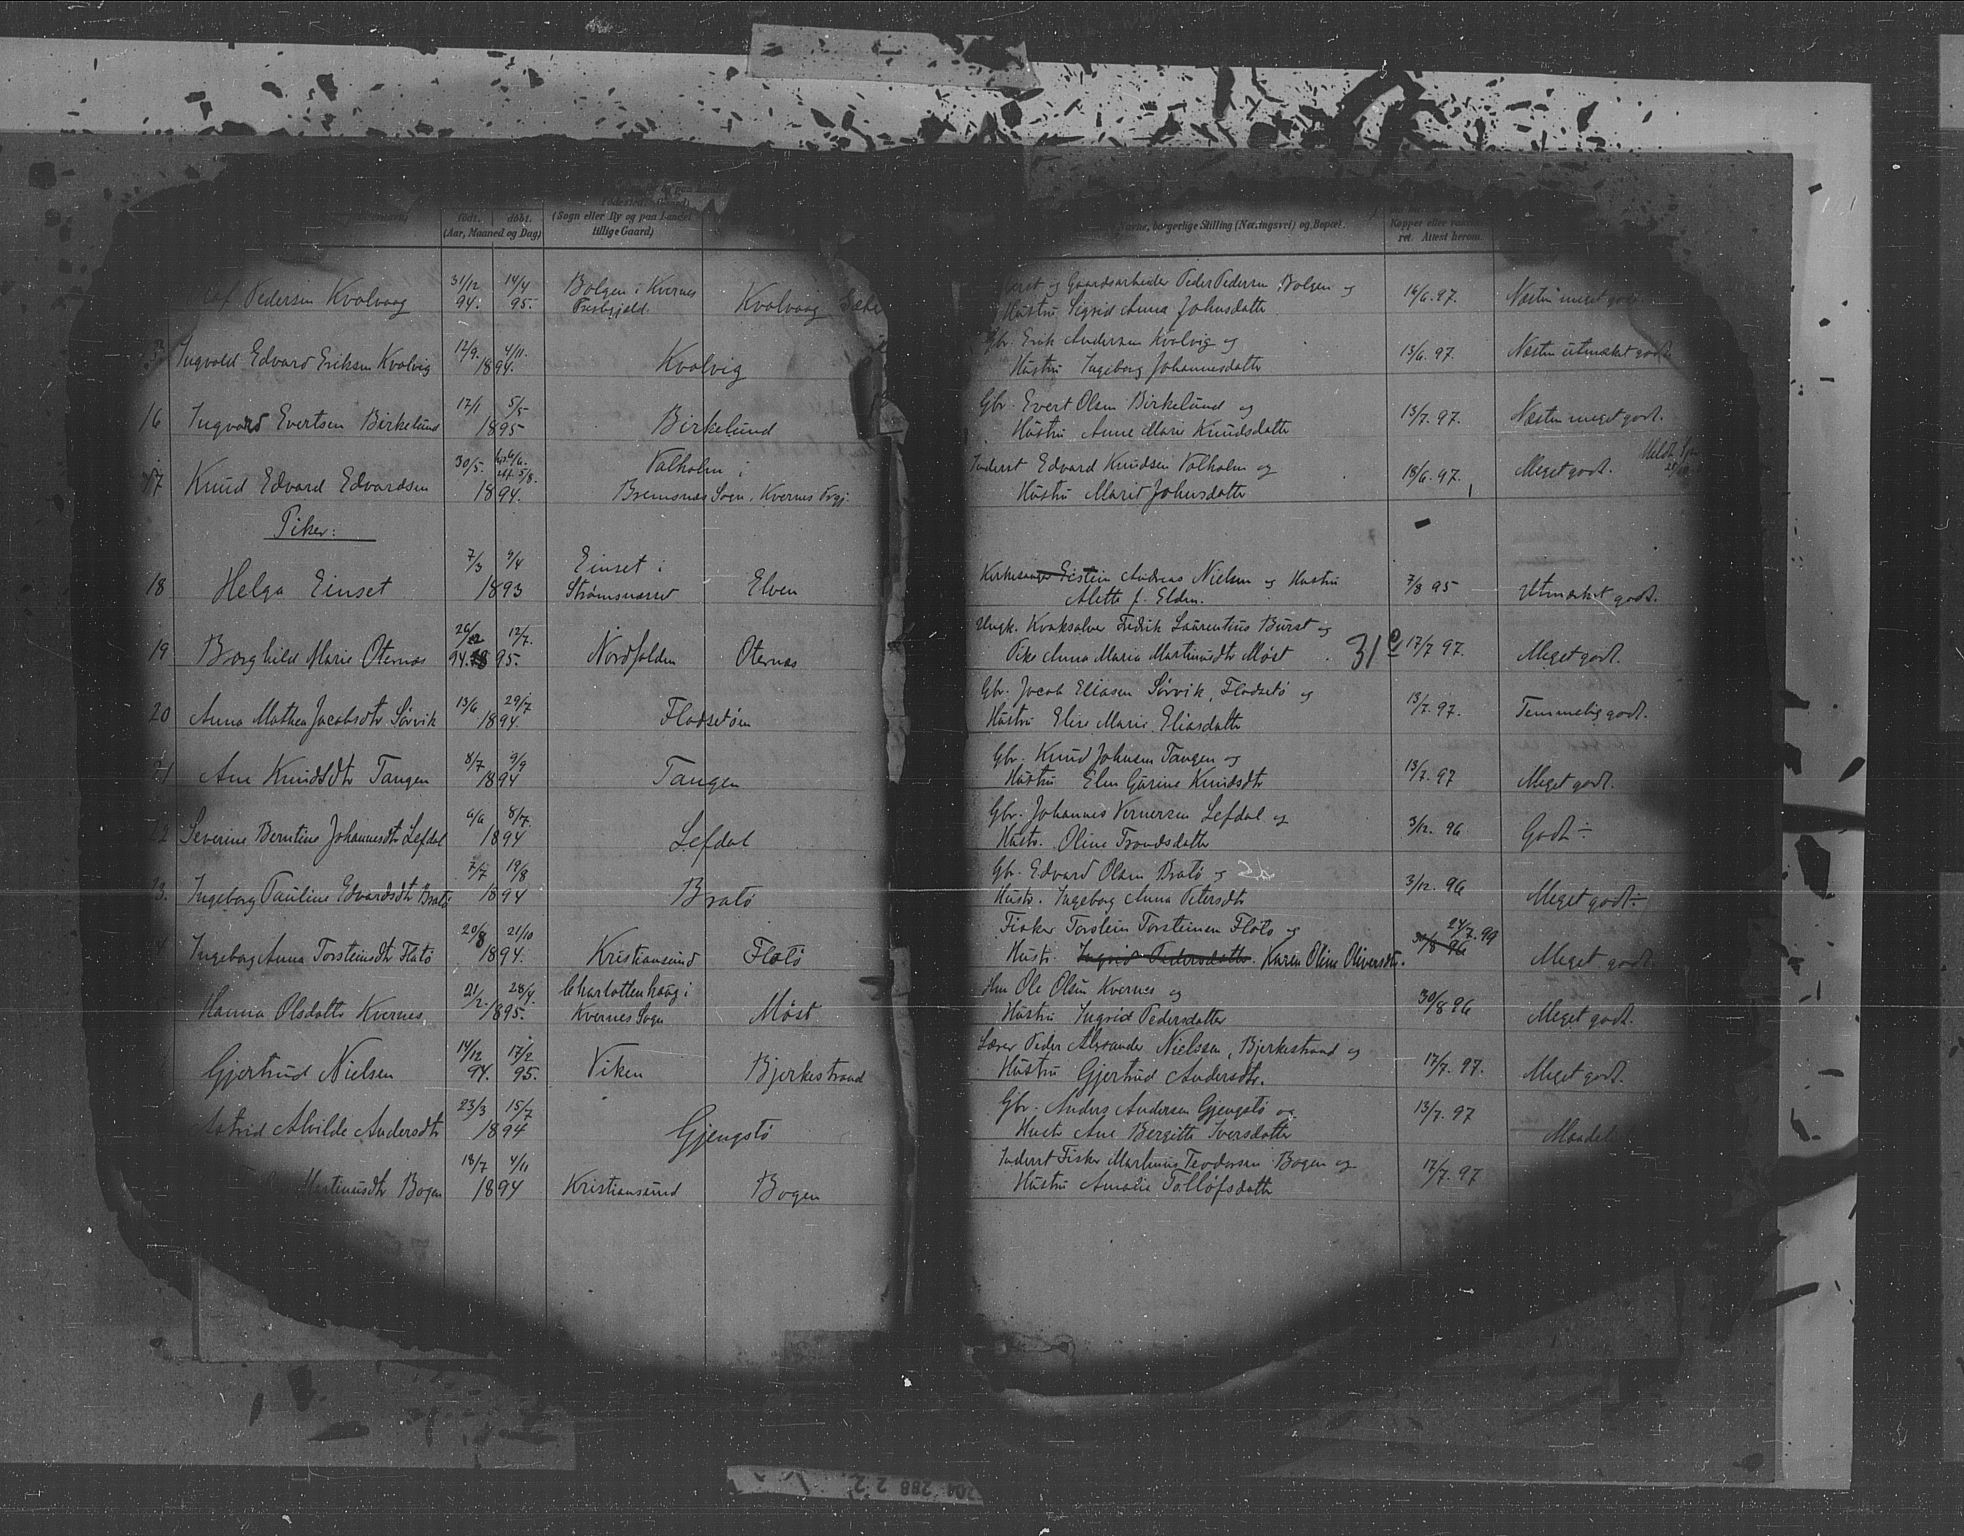 født. døbt. (Sogn eller By og paa Landet
(Aar, Maaned og Dag) tillige Gaard)
Navne, borgerlige Stilling (Næringsvei) og Bopæl. Kopper eller vaccine-
ret. Attest herom.
Pedersen Kvolvaag 31/12 94. 14/4 95. Bolgen i Kvernes Prestegjeld. Kvolvaag
og Gaardsarbeider Peder Pedersen Bolgen og
Hustru Sigrid Anna Johnsdatter 16/6 97. Næsten meget godt
Ingvald Edvard Eriksen Kvolvig 12/9. 4/11. 1894. Kvolvig
Gbr. Erik Andersen Kvolvig og
Hustru Ingeborg Johannesdatter 13/6. 97. Næsten utmærket godt
16 Ingvard Evertsen Birkelund 17/1 5/5 1895 Birkelund
Gbr. Evert Olsen Birkelund og
Hustru Anne Marie Knudsdatter 13/7. 97. Næsten meget godt.
17 Knud Edvard Edvardsen 30/5. 1894. Valholm i
Bremsnes Sogn, Kvernes Prgj.
Inderst Edvard Knudsen Valholm og
Hustru Marit Johnsdatter 18/6. 97. Meget godt.
Piker:
18 Helga Einset 7/3 9/4 1893 Einset i
Strømsnæsset Elven
Kirkesanger Eistein Andreas Nielsen og Hustru
Alette f. Elden. 7/8 95 Utmærket godt.
19 Borghild Marie Oternæs 26/12 94. 12/7. 95. Nordfolden Oternæs
Ungk. Kvaksalver Fredrik Laurentius Burst og
Pike Anna Maria Martinusdtr Møst 31 17/7 97. Meget godt.
20 Anna Mathea Jacobsdtr Sørvik 13/6 29/7 1894. Flodsetøen
Gbr. Jacob Eliasen Sørvik, Flodsetø og
Hustru Elise Marie Eliasdatter 13/7. 97. Temmelig godt.
21 Ane Knudsdtr Tangen 8/7 9/9 1894 Tangen
Gbr. Knud Johnsen Tangen og
Hustru Elen Gurine Knudsdtr 13/7. 97 Meget godt.
22 Severine Berntine Johannesdtr Lefdal 6/6 8/7. 1894 Lefdal
Gbr. Johannes Vernersen Lefdal og
Hustr. Oline Trondsdatter 3/12. 96 Godt ÷
23. Ingeborg Pauline Edvardsdtr Bratø 7/7 19/8 1894 Bratø
Gbr. Edvard Olsen Bratø og
Hustr. Ingeborg Anna Petersdtr 3/12. 96 Meget godt ÷
24 Ingeborg Anna Torsteinsdtr Flatø 20/8 21/10 1894. Kristiansund Flatø
Fisker Torstein Torsteinsen Flatø og
Hustr. Ingrid Pedersdatter. Karen Oline Oliversdtr. 30/8 96 24/7. 99 Meget godt
Hanna Olsdatter Kvernes 21/2. 28/4. 1895. Charlottenhaug i
Kvernes Sogn Møst
Hm Ole Olsen Kvernes og
Hustru Ingrid Pedersdatter 30/8 96 Meget godt.
Gjertrud Nielsen 14/12 94. 17/2 95. Viken Bjerkestrand
Lærer Peder Alexander Nielssen, Bjerkestrand og
Hustru Gjertrud Andersdtr. 17/7. 97. Meget godt.
Astrid Alvilde Andersdtr 23/3 15/7 1894 Gjengstø
Gbr. Anders Andersen Gjengstø og
Hustr Ane Bergitte Iversdatter 13/7. 97
Martinusdtr Bogen 18/7 4/11 1894 Kristiansund Bogen
Inderst Fisker Martinus Teodorsen Bogen og
Hustru Amalie Tollöfsdatter 17/7. 97
204 288 2 2